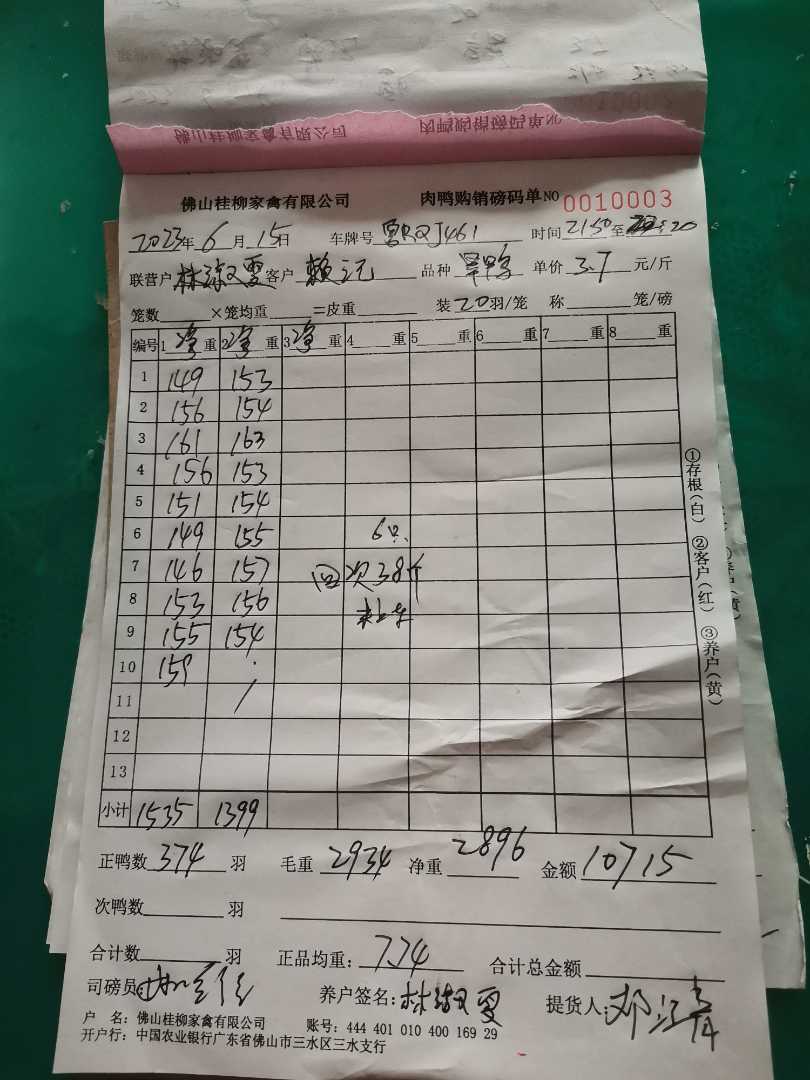 佛山桂柳家禽有限公司 肉鸭购销磅码单NO
佛山桂柳家禽有限公司 肉鸭购销磅码单NO 0010003
2023年6月15日 车牌号 J461 时间2150至 20
联营户 林 客户 赖记 品种 旱鸭 单价3.7元/斤
笼数 ×笼均重 =皮重 装20羽/笼 称 笼/磅
编号 1净重 2净重 3净重 4 重 5 重 6 重 7 重 8 重
1 149 153
2 156 154
3 161 163
4 156 153
5 151 154
6 149 155 6只
7 146 157 回次38斤
8 153 156
9 155 154
10 159
11 /
12
13
小计 1535 1399
正鸭数374羽 毛重2934 净重2896 金额10715
次鸭数 羽
合计数 羽 正品均重:7.74 合计总金额
司磅员 养户签名: 林 提货人: 邓
户 名:佛山桂柳家禽有限公司 账号:444 401 010 400 169 29
开户行:中国农业银行广东省佛山市三水区三水支行
①存根(白) ②客户(红) ③养户(黄)